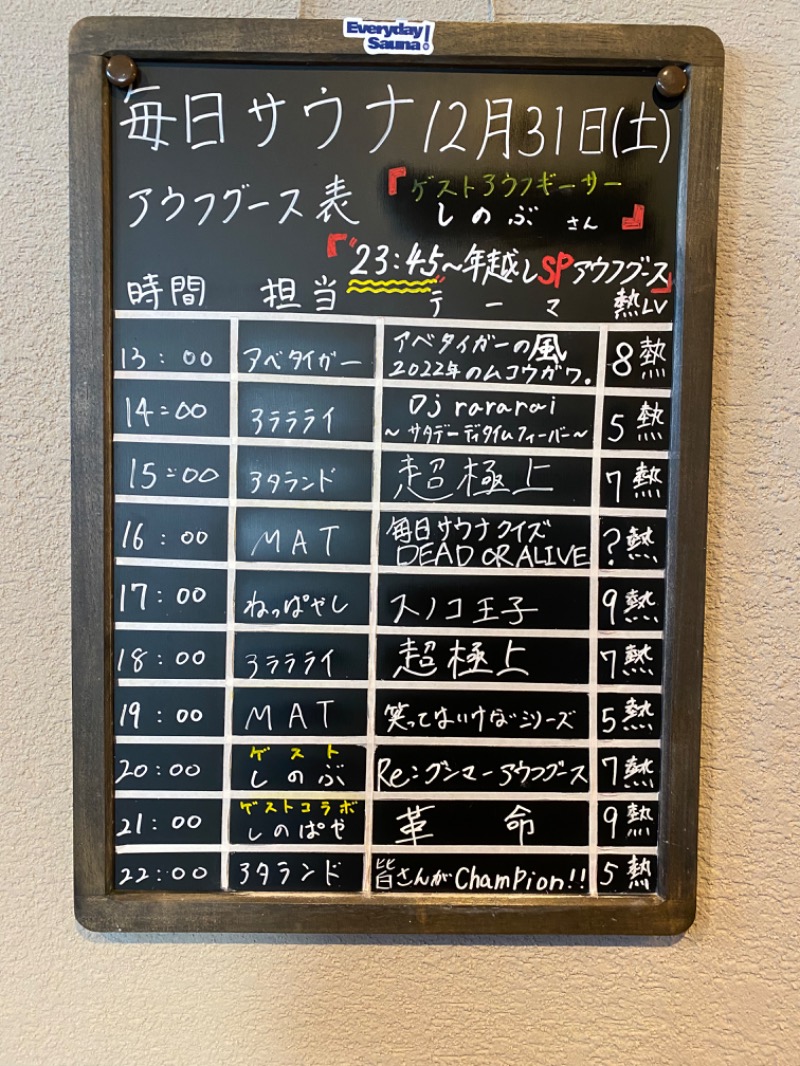 Everyday
Sauna!
毎日サウナ12月31日(土)
アウフグース表
『ゲストアウフギーサー
しのぶ さん』
『"23:45"~年越しSPアウフグース』
時間 担当 テーマ 熱LV
13:00 アベタイガー アベタイガーの風 2022年のムコウガワ。 8熱
14:00 アラライ Dj rararai ～サタデーデイタイムフィーバー～ 5熱
15:00 アタランド 超極上 7熱
16:00 MAT 毎日サウナクイズ DEAD OR ALIVE ?熱
17:00 ねっぱやし スノコ王子 9熱
18:00 アラライ 超極上 7熱
19:00 MAT 笑ってはいけないシリーズ 5熱
20:00 ゲスト しのぶ Re:グンマーアウフグース 7熱
21:00 ゲストコラボ しのぱや 革命 9熱
22:00 アタランド 皆さんがChamPion!! 5熱